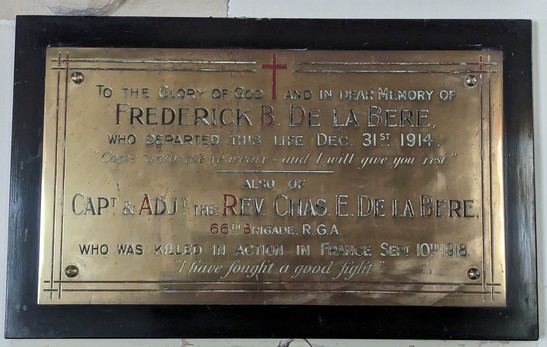 To the Glory of God and in dear Memory of
Frederick B. De la Bere,
who departed this life Dec. 31st 1914.
"Come unto me ye weary – and I will give you rest."
Also of
Capt & Adjt the Rev. Chas. E. De la Bere,
66th Brigade, R.G.A.
who was killed in action in France Sept 10th 1918.
"I have fought a good fight"